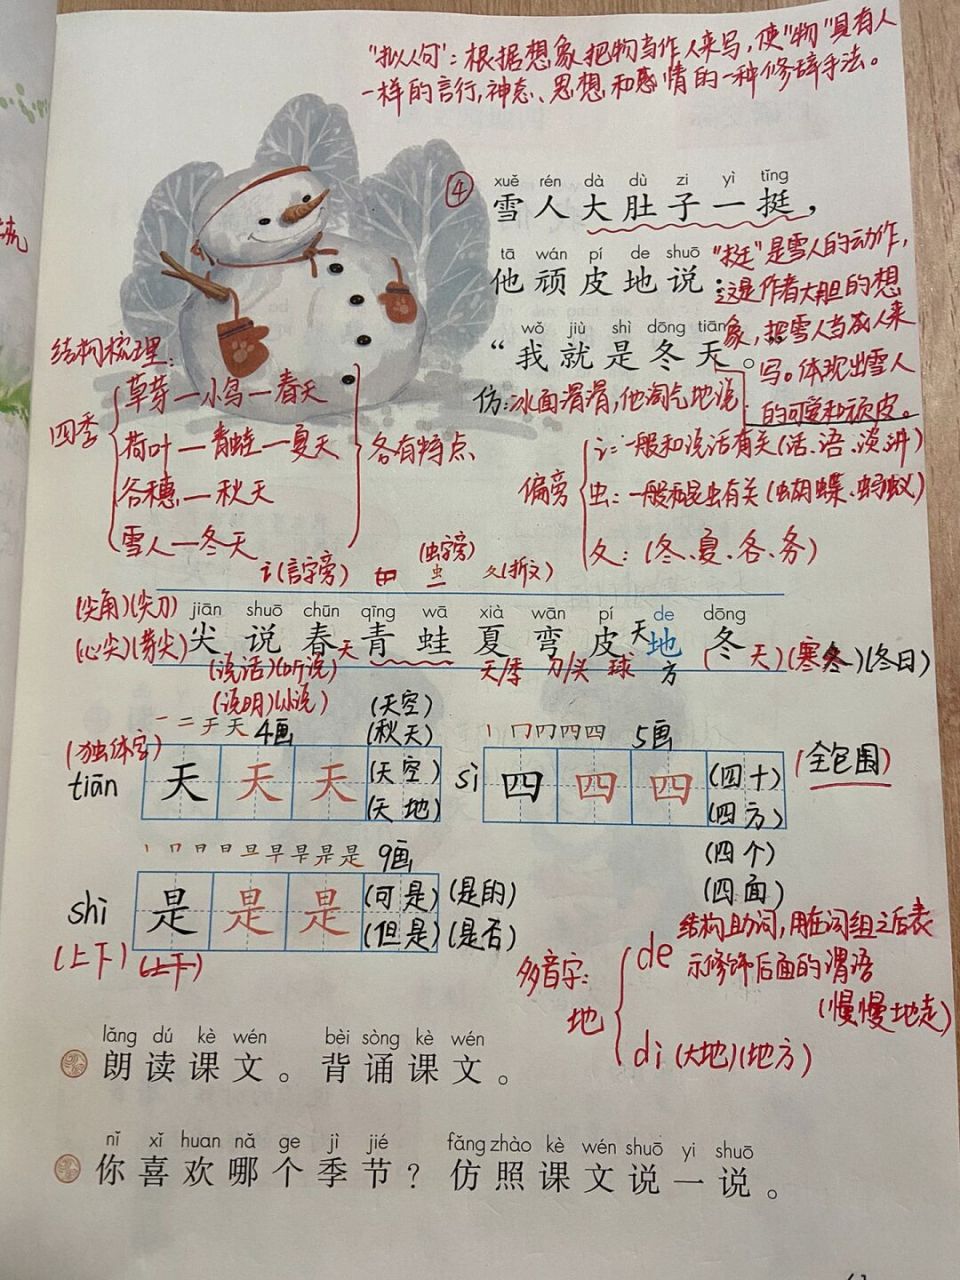 "拟人句"：根据想象把物当作人来写，使"物"具有人
一样的言行，神态、思想和感情的一种修辞手法。
④
xuě rén dà dù zi yì tǐng
雪人大肚子一挺，
tā wán pí de shuō
他顽皮地说：
wǒ jiù shì dōng tiān
“我就是冬天。”
"挺"是雪人的动作，
这是作者大胆的想
象，把雪人当成人来
写。体现出雪人
的可爱和顽皮。
仿：冰面滑滑，他淘气地说
结构梳理：
四季
草芽—小鸟—春天
荷叶—青蛙—夏天
谷穗—秋天
雪人—冬天
各有特点
偏旁
讠：一般和说话有关(话、语、谈、讲)
虫：一般和昆虫有关(蝴蝶、蚂蚁)
夂：(冬、夏、各、务)
讠(言字旁)
(虫字旁)
虫
夂(折文)
(尖角)(尖刀)
(心尖)(芽尖)
jiān shuō chūn qīng wā xià wān pí de dōng
尖 说 春 青 蛙 夏 弯 皮 地 冬
天
天/季 刀/头 球 天 方
(天)(寒冬)(冬日)
(说话)(听说)
(说明)(小说)
(独体字)
一 二 于 天 4画
(天空)
(秋天)
tiān
天 天 天
(天空)
(天地)
丨 冂 冂 四 四 5画
sì
四 四 四
(四十)
(四方)
(四个)
(四面)
(全包围)
9画
shì
是 是 是
(可是)(是的)
(但是)(是否)
(上下)
(上下)
多音字：
地
de 结构助词，用在词组之后表
示修饰后面的谓语
(慢慢地走)
dì (大地)(地方)
lǎng dú kè wén bèi sòng kè wén
朗读课文。背诵课文。
nǐ xǐ huan nǎ ge jì jié fǎng zhào kè wén shuō yi shuō
你喜欢哪个季节？仿照课文说一说。